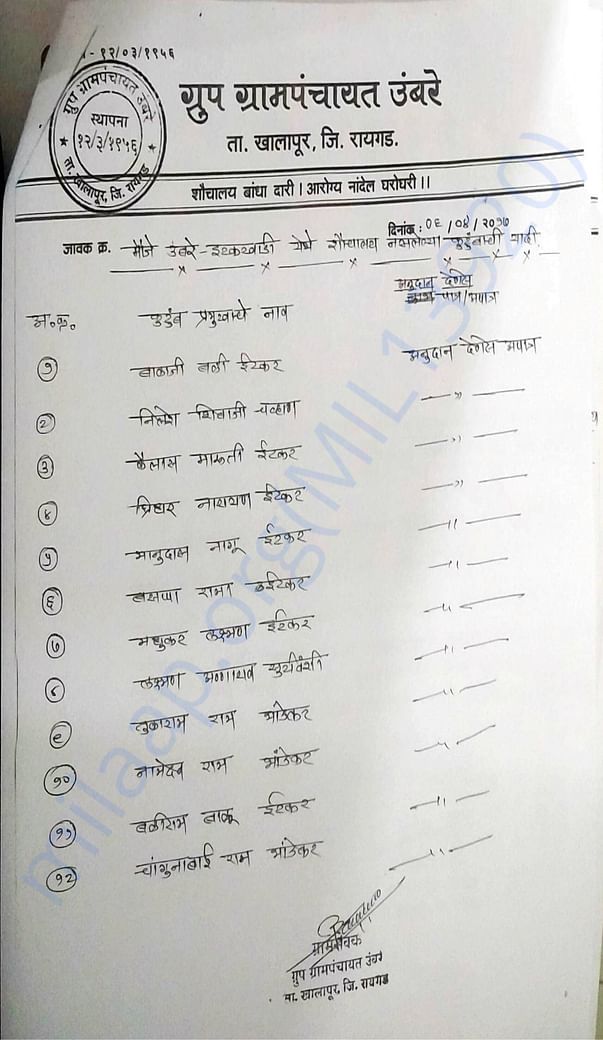 - १२/०३/१९५६
ग्रुप ग्रामपंचायत उंबरे
स्थापना
१२/३/१९५६
ता. खालापूर, जि. रायगड.
ग्रुप ग्रामपंचायत उंबरे
ता. खालापूर, जि. रायगड.
शौचालय बांधा दारी । आरोग्य नांदेल घरोघरी ।।
दिनांक : ०६/०४/२०१७
जावक क्र. मौजे उंबरे-इटकरवाडी येथे शौचालय नसलेल्या कुटुंबाची यादी
अनुदान देणेस
पात्र/अपात्र
अ.क्र. कुटुंब प्रमुखाचे नाव
१ बाळाजी बली ईटकर अनुदान देणेस अपात्र
२ निलेश शिवाजी चव्हाण —〃—
३ कैलास मारुती ईटकर —〃—
४ नारायण ईटकर —〃—
५ भानुदास नागू ईटकर —〃—
६ बसप्पा रामा ईटकर —〃—
७ मधुकर लक्ष्मण ईटकर —〃—
८ लक्ष्मण सुर्यवंशी —〃—
९ तुकाराम राम भांडेकर —〃—
१० नामदेव राम भांडेकर —〃—
११ बळीराम बाळू ईटकर —〃—
१२ चांगुनाबाई राम भांडेकर —〃—
ग्रामसेवक
ग्रुप ग्रामपंचायत उंबरे
ता. खालापूर, जि. रायगड
milaap.org(MIL13920)